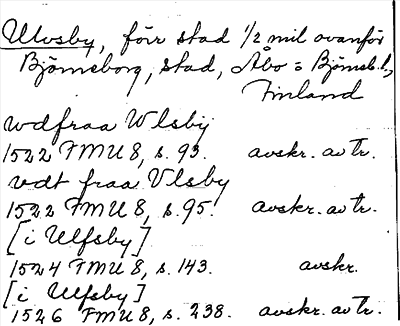 Ulvsby, förr stad 1/2 mil ovanför
Björneborg, stad, Åbo o Björneb. l.,
Finland
wdfraa Wlsby
1522 FMU 8, s. 93. avskr. av tr.
vdt fraa Vlsby
1522 FMU 8, s. 95. avskr. av tr.
[i Ulfsby]
1524 FMU 8, s. 143. avskr.
[i Ulfsby]
1526 FMU 8, s. 238. avskr. av tr.